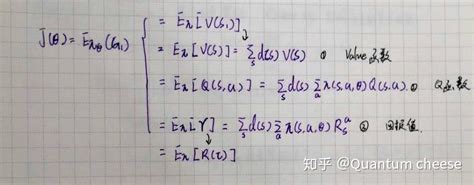 J(θ) = E_πθ(G₁) { = E_π[V(s₁)]
= E_π[V(s)] = Σ_s d(s) V(s) ① Value 函数
= E_π[Q(s,a)] = Σ_s d(s) Σ_a π(s,a,θ) Q(s,a). ② Q函数
= E_π[r] = Σ_s d(s) Σ_a π(s,a,θ) R_s^a ③ 回报值.
= E_π[R(τ)]
知乎 @Quantum cheese